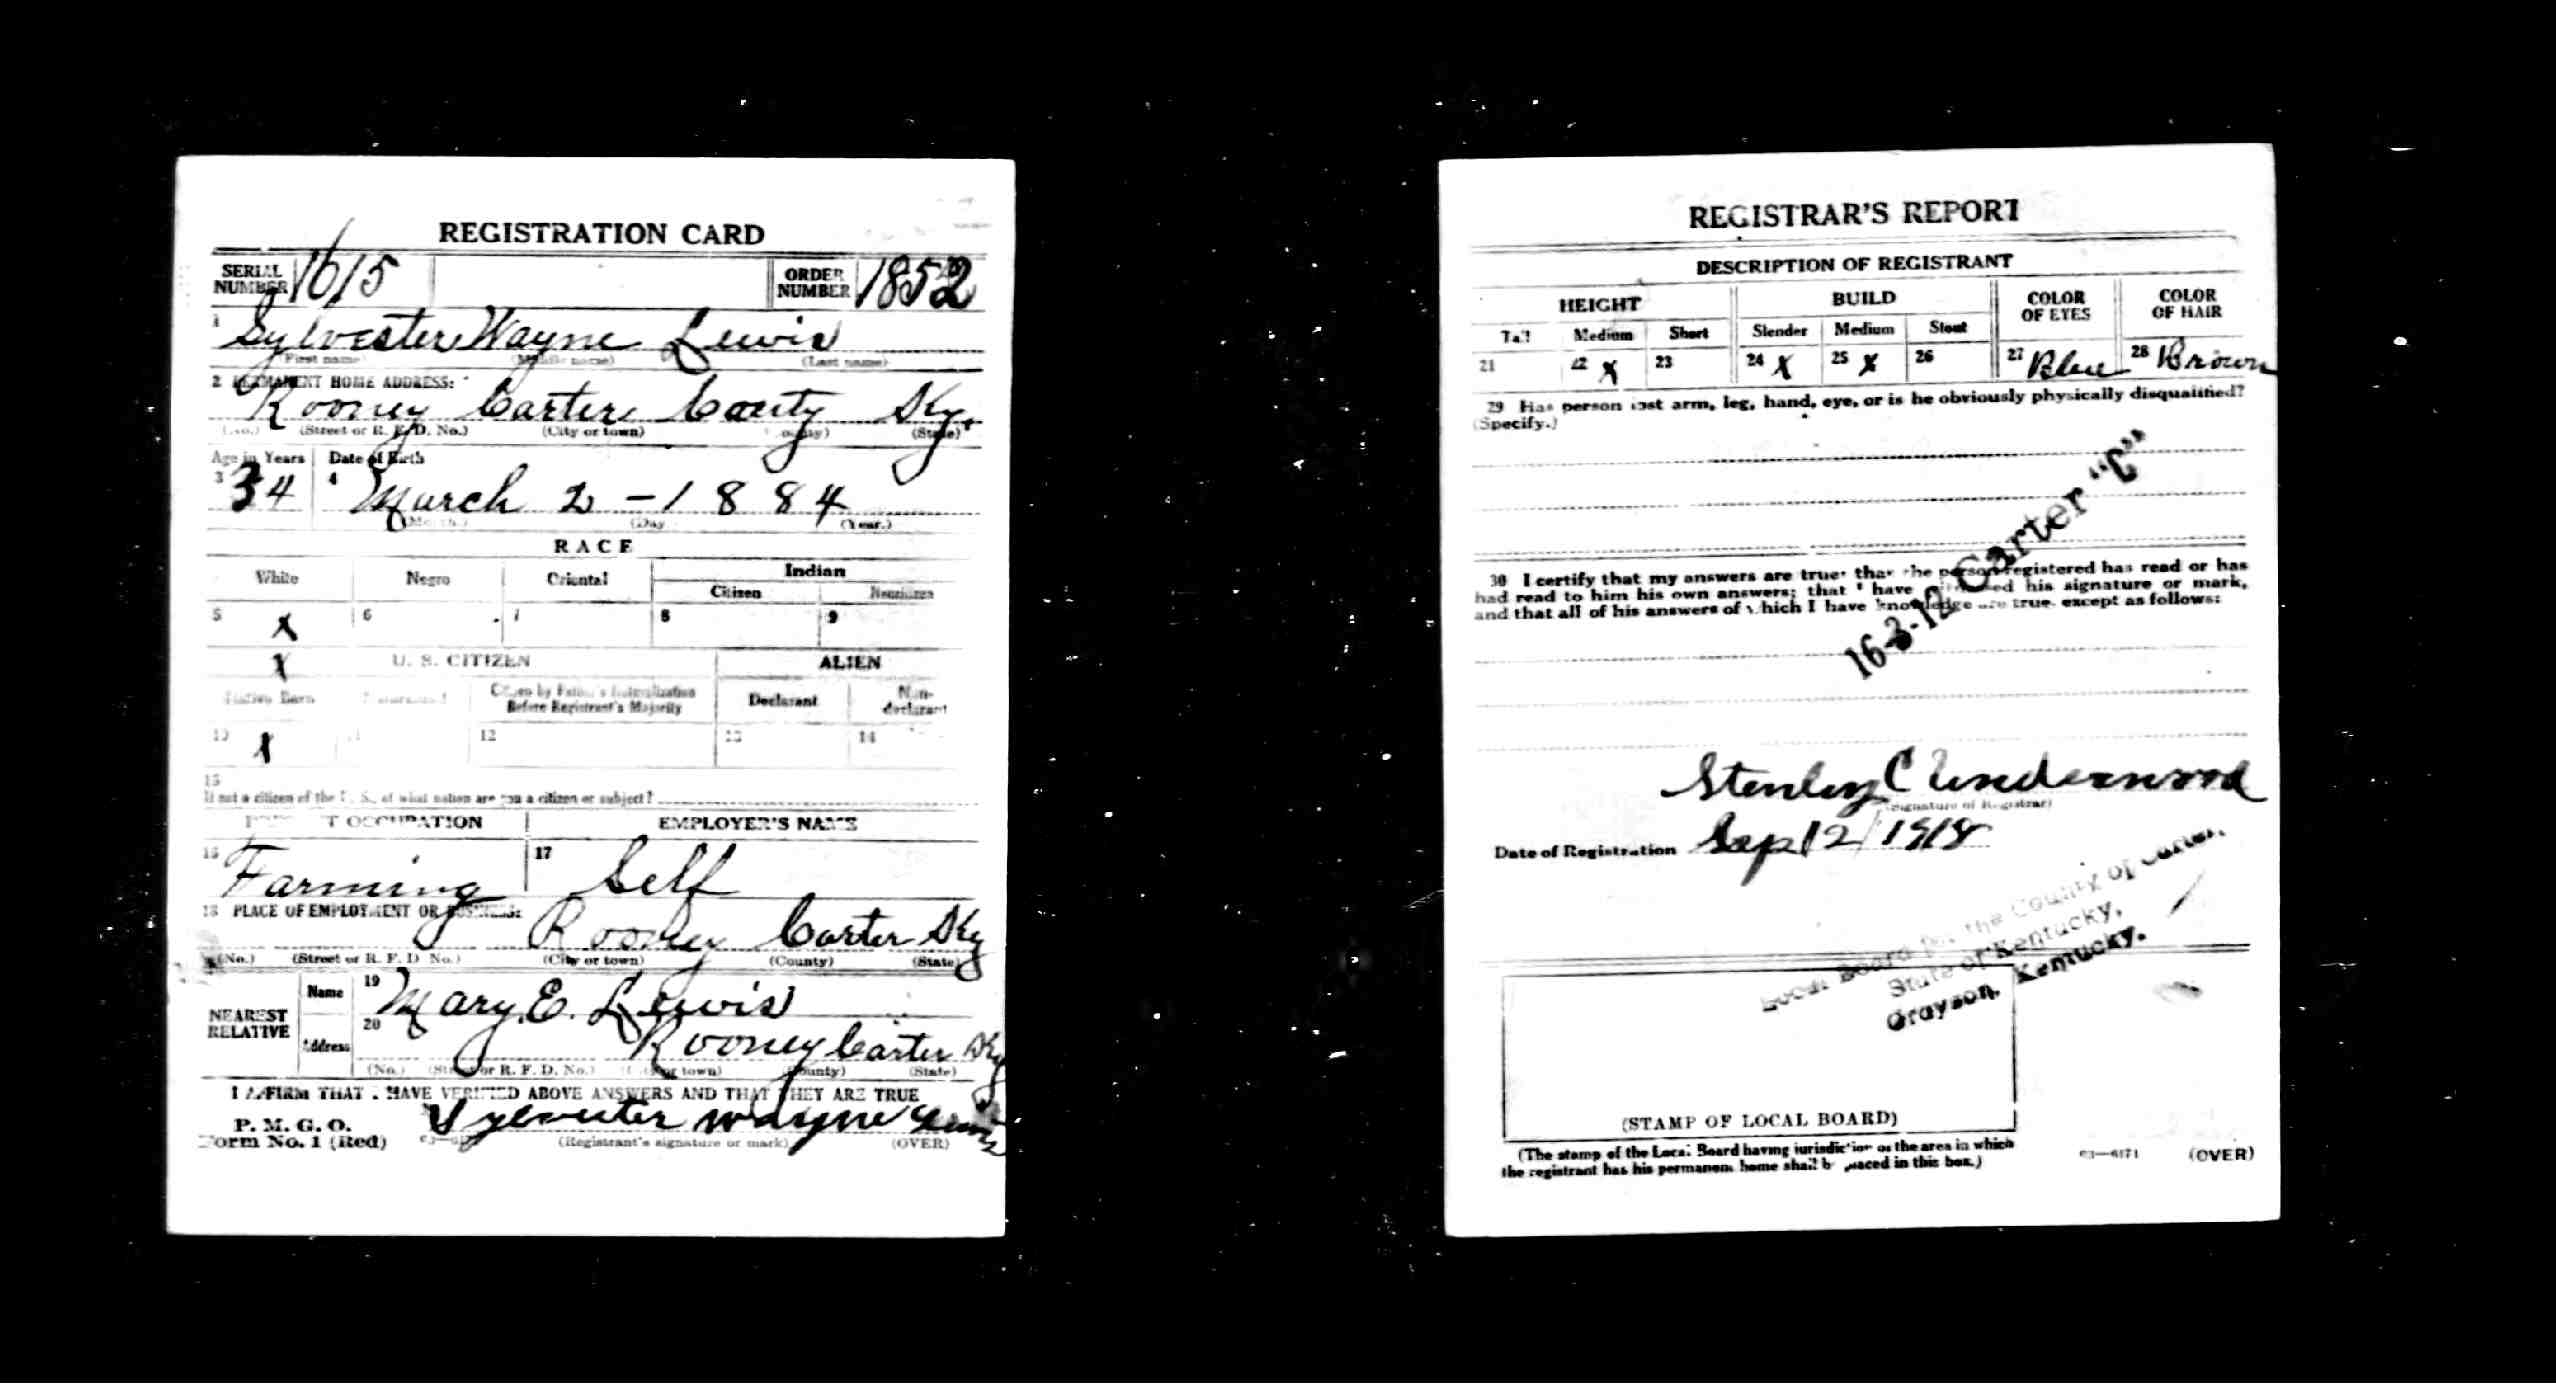 REGISTRATION CARD
SERIAL NUMBER 1615 ORDER NUMBER 1852
1 Sylvester Wayne Lewis
(First name) (Middle name) (Last name)
2 PERMANENT HOME ADDRESS:
Rooney Carter County Ky.
(No.) (Street or R. F. D. No.) (City or town) (County) (State)
Age in Years Date of Birth
3 34 4 March 2 - 1884
(Month.) (Day (Year.)
RACE
White Negro Oriental Indian
Citizen Noncitizen
5 X 6 7 8 9
X U. S. CITIZEN ALIEN
Native Born Naturalized Citizen by Father's Naturalization Before Registrant's Majority Declarant Non-declarant
10 X 11 12 13 14
15
If not a citizen of the U. S., of what nation are you a citizen or subject?
PRESENT OCCUPATION EMPLOYER'S NAME
16 Farming 17 Self
18 PLACE OF EMPLOYMENT OR BUSINESS:
Rooney Carter Ky
(No.) (Street or R. F. D. No.) (City or town) (County) (State)
NEAREST RELATIVE Name 19 Mary E. Lewis
Address 20 Rooney Carter Ky
(No.) (Street or R. F. D. No.) (City or town) (County) (State)
I AFFIRM THAT I HAVE VERIFIED ABOVE ANSWERS AND THAT THEY ARE TRUE
P. M. G. O.
Form No. 1 (Red) Sylvester Wayne Lewis
(Registrant's signature or mark) (OVER)
REGISTRAR'S REPORT
DESCRIPTION OF REGISTRANT
HEIGHT BUILD COLOR OF EYES COLOR OF HAIR
Tall Medium Short Slender Medium Stout
21 22 X 23 24 X 25 X 26 27 Blue 28 Brown
29 Has person lost arm, leg, hand, eye, or is he obviously physically disqualified?
(Specify.)
16-3-12 Carter "C"
30 I certify that my answers are true; that the person registered has read or has
had read to him his own answers; that I have witnessed his signature or mark,
and that all of his answers of which I have knowledge are true, except as follows:
Stenley C Underwood
(Signature of Registrar)
Date of Registration Sep 12/1918
Local Board for the County of Carter,
State of Kentucky,
Grayson, Kentucky.
(STAMP OF LOCAL BOARD)
(The stamp of the Local Board having jurisdiction of the area in which
the registrant has his permanent home shall be placed in this box.)
03—6171 (OVER)